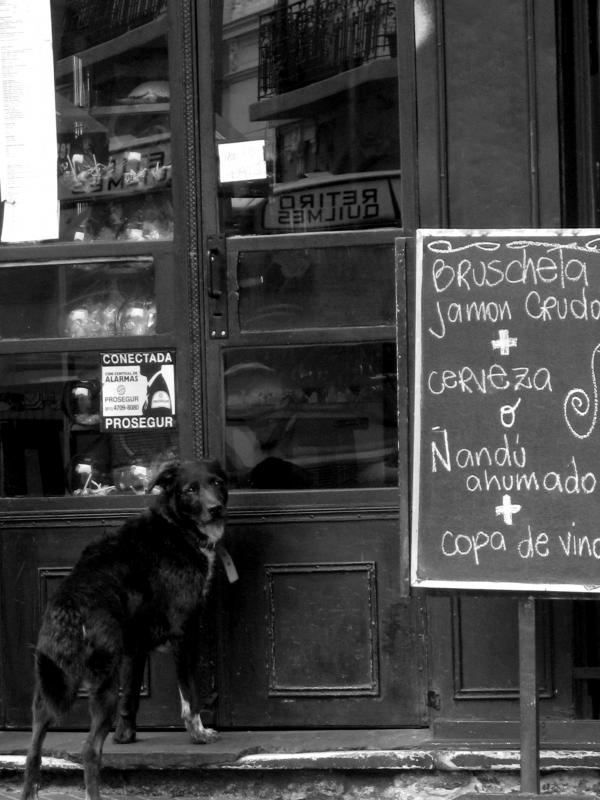 RETIRO
QUILMES
CONECTADA
CON CENTRAL DE
ALARMAS
PROSEGUR
4709-8080
PROSEGUR
BRUSCHETA
JAMON CRUDO
+
CERVEZA
ó
Ñandú
ahumado
+
copa de vino